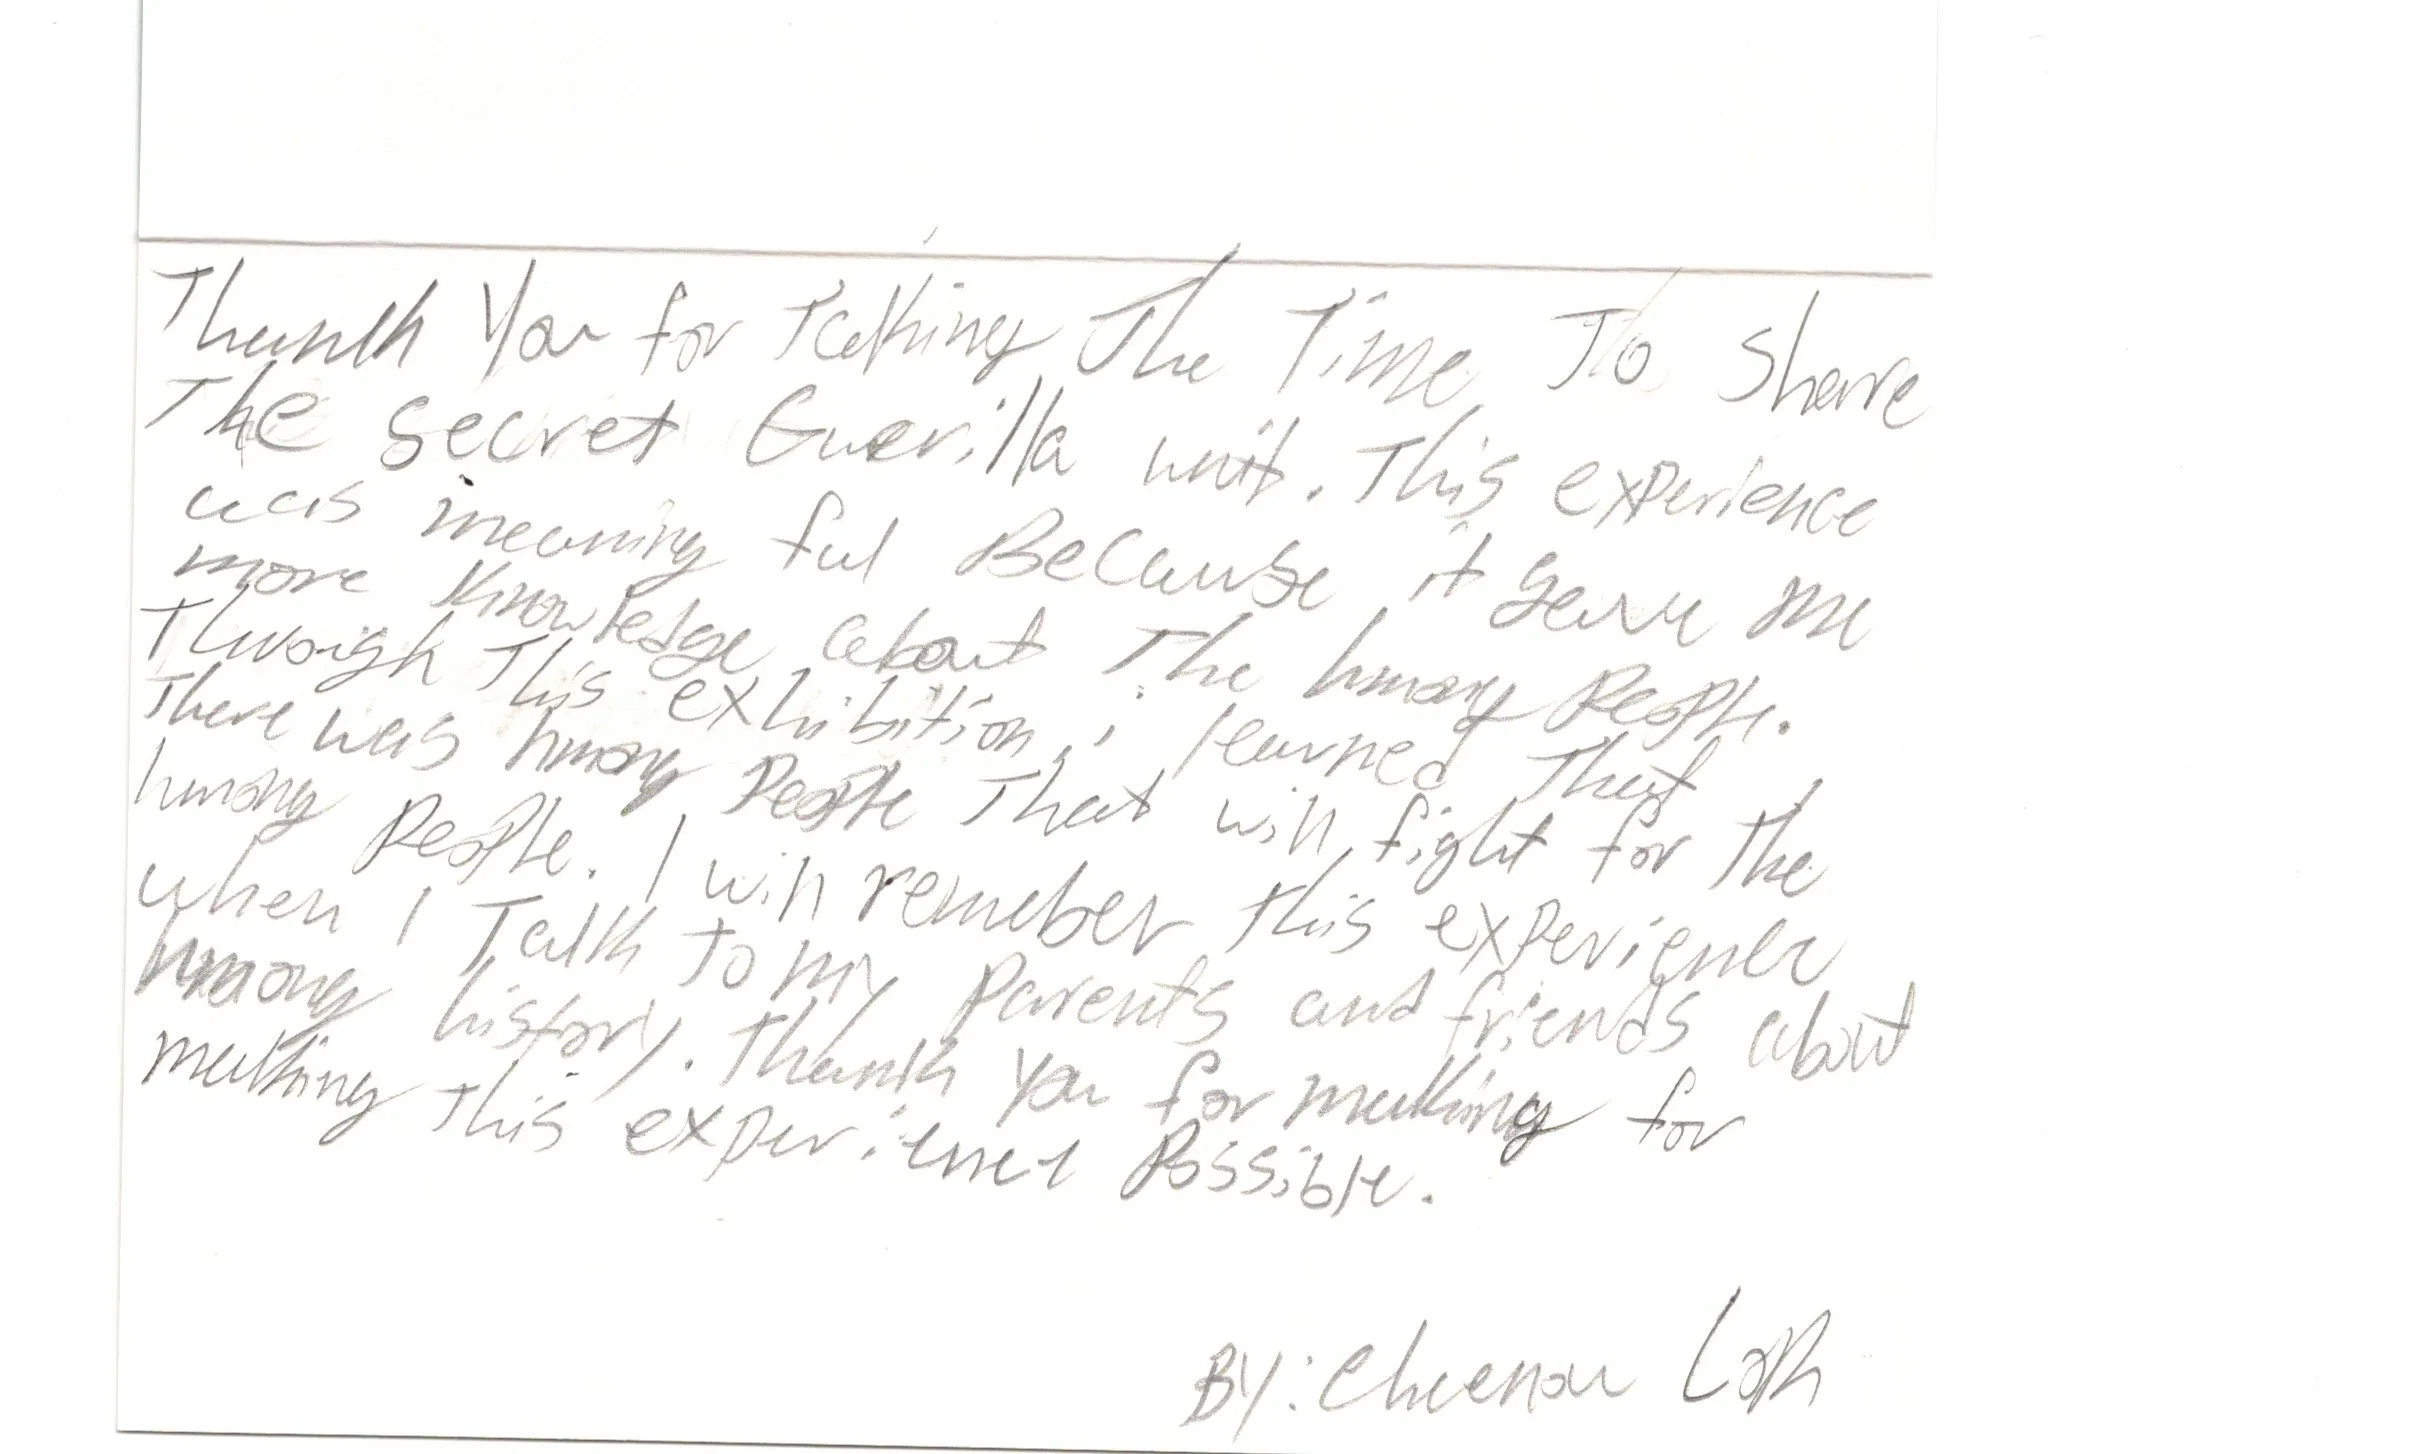 Thank You for Taking The Time To Share
The secret Guerilla unit. This experience
was meaning ful Because it gave me
more knowledge about The hmong People.
Through This exhibition, i learned That
There was hmong People That will fight for The
hmong People. I will remeber this experience
when I Talk to my Parents and friends about
hmong history. Thank you for making for
making this experience Possible.
BY: